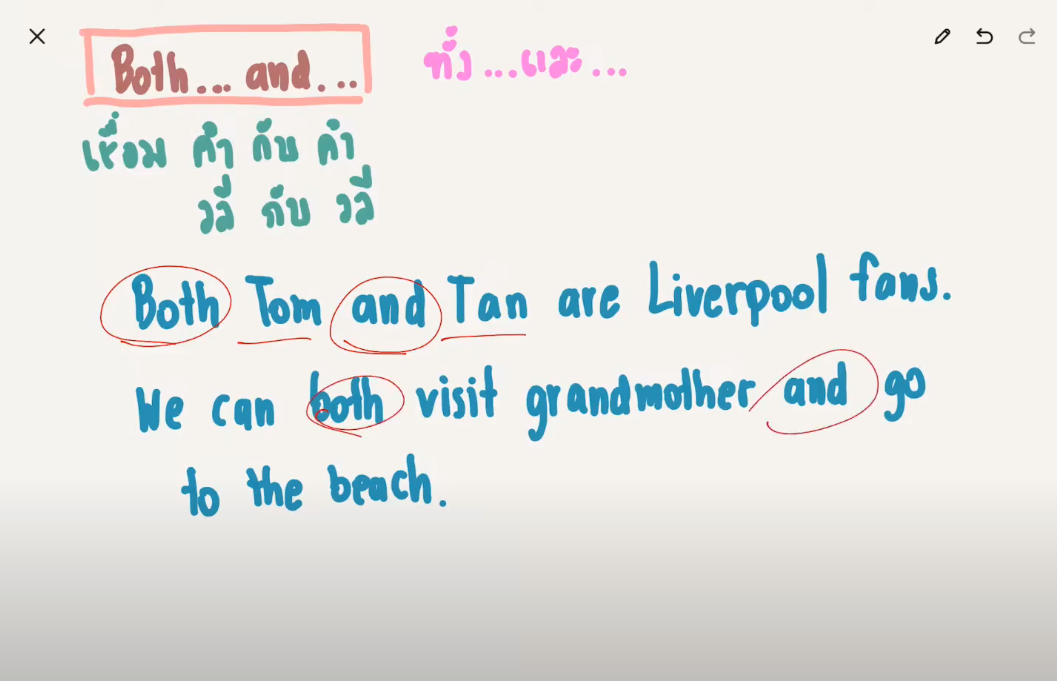 Both... and... ทั้ง...และ...
เชื่อม คำ กับ คำ
วลี กับ วลี
Both Tom and Tan are Liverpool fans.
We can both visit grandmother and go
to the beach.